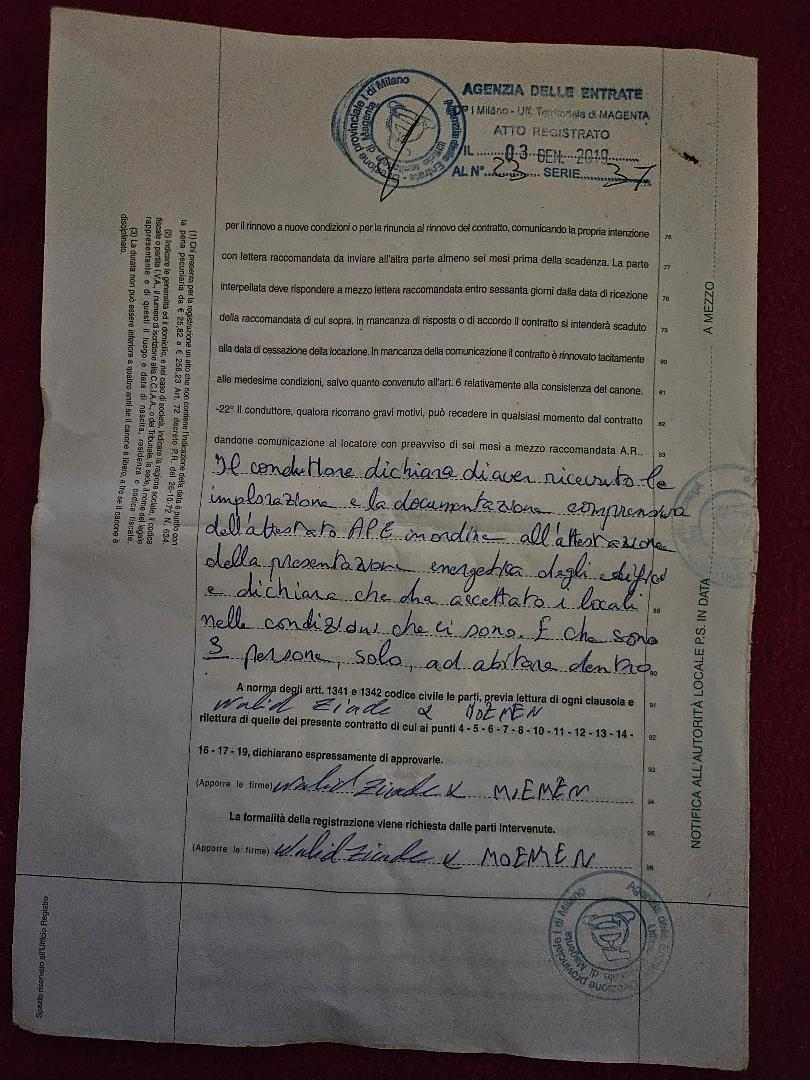 AGENZIA DELLE ENTRATE
DP I Milano - Uff. Territoriale di MAGENTA
ATTO REGISTRATO
IL 03 GEN. 2019
AL N° 23 SERIE 3T
per il rinnovo a nuove condizioni o per la rinuncia al rinnovo del contratto, comunicando la propria intenzione 76
con lettera raccomandata da inviare all'altra parte almeno sei mesi prima della scadenza. La parte 77
interpellata deve rispondere a mezzo lettera raccomandata entro sessanta giorni dalla data di ricezione 78
della raccomandata di cui sopra. In mancanza di risposta o di accordo il contratto si intenderà scaduto 79
alla data di cessazione della locazione. In mancanza della comunicazione il contratto è rinnovato tacitamente 80
alle medesime condizioni, salvo quanto convenuto all'art. 6 relativamente alla consistenza del canone. 81
-22° Il conduttore, qualora ricorrano gravi motivi, può recedere in qualsiasi momento dal contratto 82
dandone comunicazione al locatore con preavviso di sei mesi a mezzo raccomandata A.R.. 83
Il conduttore dichiara di aver ricevuto le
implorazione e la documentazione comprensiva
dell'attestato APE in ordine all'attestazione
della presentazione energetica degli edifici
e dichiara che ha accettato i locali 88
nelle condizioni che ci sono. E che sono
3 persone, solo, ad abitare dentro 90
A norma degli artt. 1341 e 1342 codice civile le parti, previa lettura di ogni clausola e 91
Walid Ziade & MOEMEN
rilettura di quelle del presente contratto di cui ai punti 4 - 5 - 6 - 7 - 8 - 10 - 11 - 12 - 13 - 14 - 92
16 - 17 - 19, dichiarano espressamente di approvarle. 93
(Apporre le firme) Walid Ziade & MOEMEN 94
La formalità della registrazione viene richiesta dalle parti intervenute. 95
(Apporre le firme) Walid Ziade & MOEMEN 96
(1) Chi presenta per la registrazione un atto che non contiene l'indicazione della data è punito con
la pena pecuniaria da € 25,82 a € 258,23 Art. 72 decreto P.R. del 26-10-72 N. 634.
(2) Indicare le generalità ed il domicilio, e nel caso di società, indicare la ragione sociale, il codice
fiscale o partita I.V.A., il numero di iscrizione alla C.C.I.A.A., o del Tribunale, la sede, il nome del legale
rappresentante e di questi il luogo e data di nascita, residenza e codice fiscale.
(3) La durata non può essere inferiore a quattro anni se il canone è libero, a tre se il canone è
disciplinato.
A MEZZO
NOTIFICA ALL'AUTORITÀ LOCALE P.S. IN DATA
Spazio riservato all'Ufficio Registro
Direzione provinciale I di Milano
Agenzia delle Entrate
di Magenta